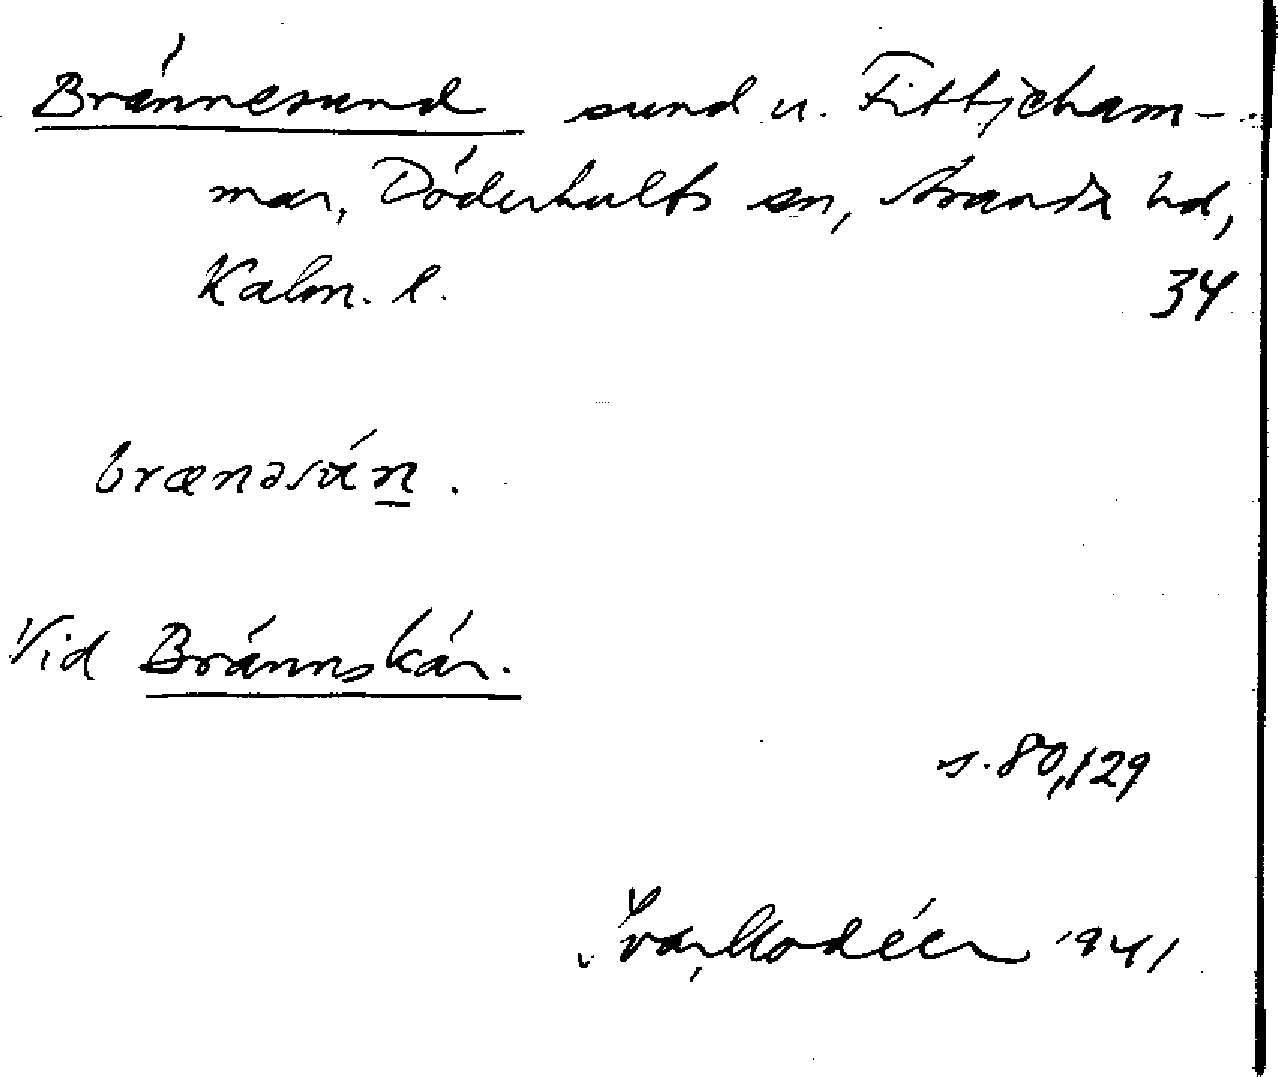 Brännesund sund u. Fittjeham-
mar, Döderhults sn, Stranda hd,
Kalm. l. 34
brænəsún.
Vid Brännskär.
s. 80,129
Ivar Modéer 1941